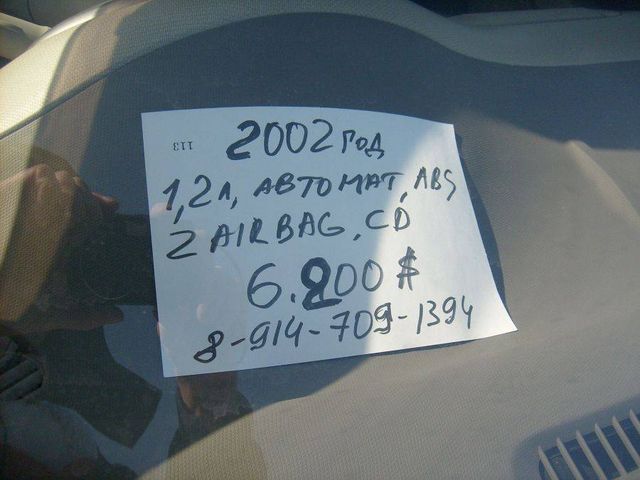 113
2002 год
1,2л, АВТОМАТ, ABS
2 AIRBAG, CD
6.200$
8-914-709-1394